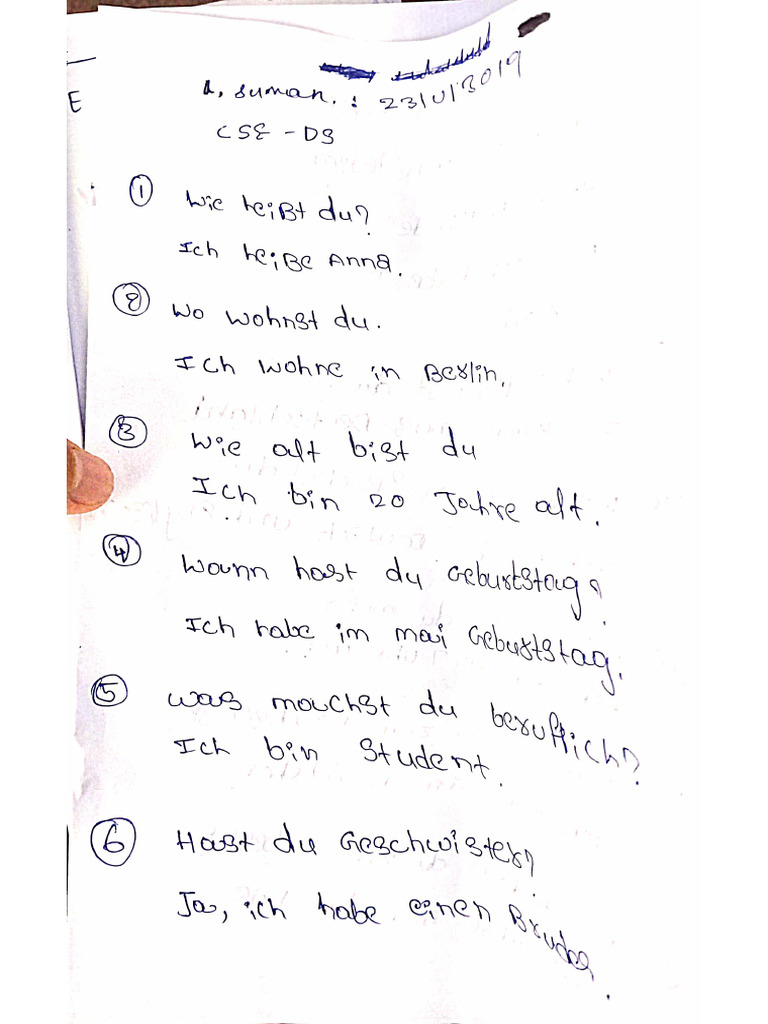 E
A, suman. : 23/U/3019
CSE - DS
① Wie heißt du?
Ich heiße Anna.
② Wo wohnst du.
Ich wohne in Berlin.
③ Wie alt bist du
Ich bin 20 Jahre alt.
④ Wann hast du Geburtstag?
Ich habe im mai Geburtstag.
⑤ was machst du beruflich?
Ich bin Student.
⑥ Hast du Geschwister?
Ja, ich habe einen Bruder.